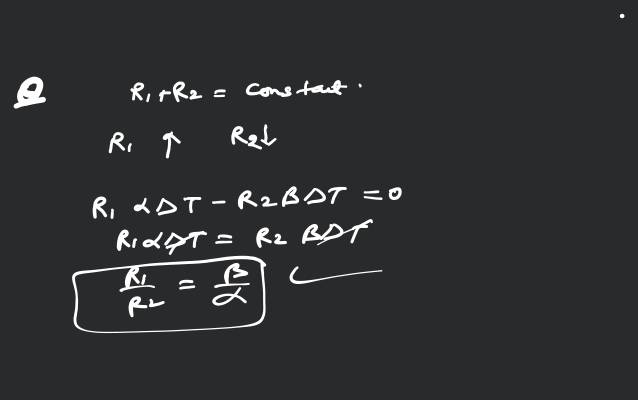 Q R₁+R₂ = constant.
R₁ ↑ R₂↓
R₁ α△T − R₂β△T = 0
R₁α△T = R₂ β△T
R₁/R₂ = β/α